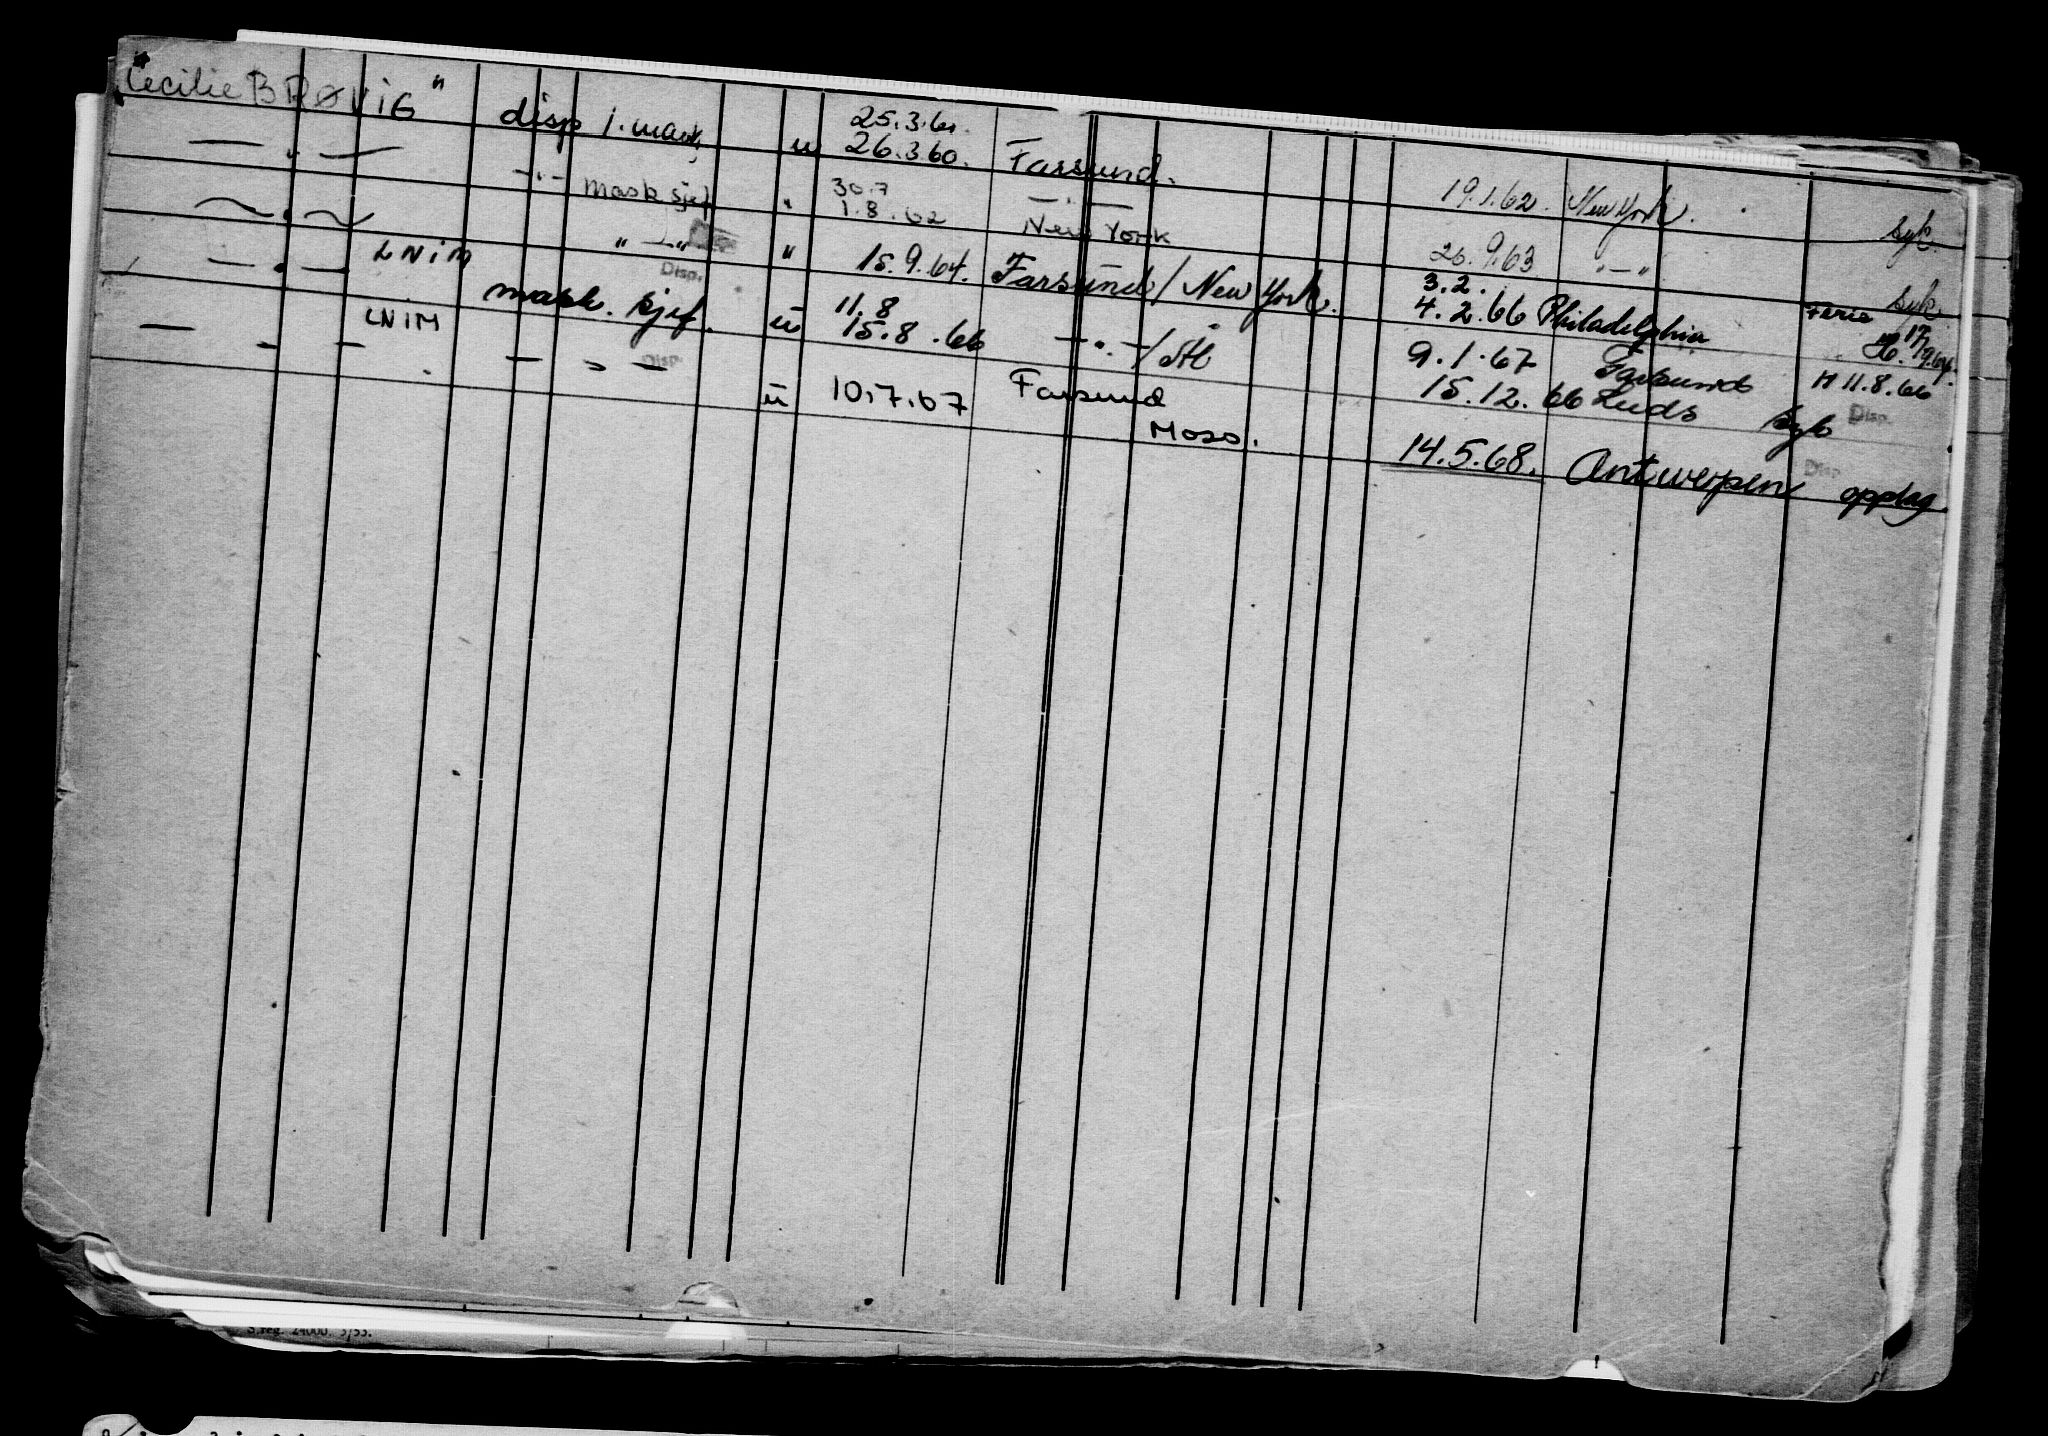 "Cecilie BRØVIG" disp 1. mask. u 25.3.61. 26.3.60. Farsund. 19.1.62. New York. syk.
— „ — — „ — mask sjef " 30.7 1.8.62 — „ — New York 26.9.63 " — " syk.
— „ — LNIM " — " Disp. " 15.9.64. Farsund / New York. 3.2. 4.2.66 Philadelphia Ferie H. 17/9.64.
— „ — LNIM mask. sjef. Disp. u 11.8 15.8.66 — „ — / 9.1.67 Farsund H 11.8.66
15.12.66 Leeds syk Disp.
— „ — — „ — u 10.7.67 Farsund Moss. 14.5.68. Antwerpen Disp. opplag
S.reg. 24000. 3/53.